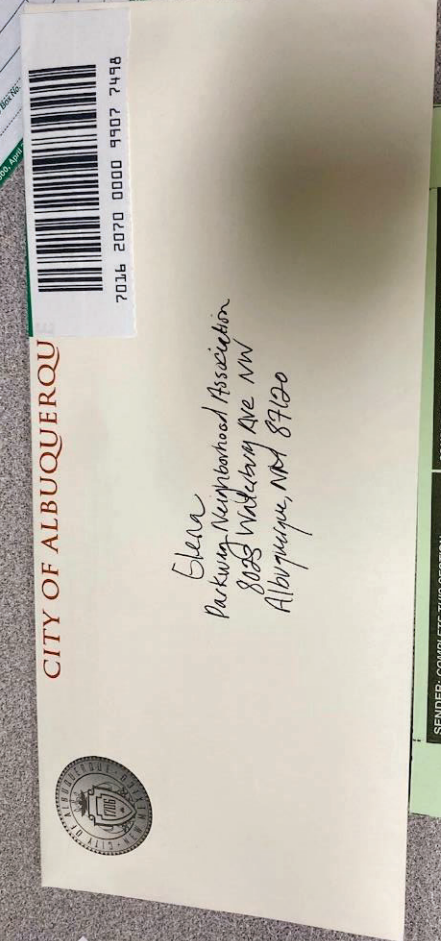 CITY OF ALBUQUERQU
7016 2070 0000 9907 7498
Elena
Parkway Neighborhood Association
8023 Waterbury Ave NW
Albuquerque, NM 87120
CITY OF ALBUQUERQUE
1706
Box No.
SENDER: COMPLETE THIS SECTION